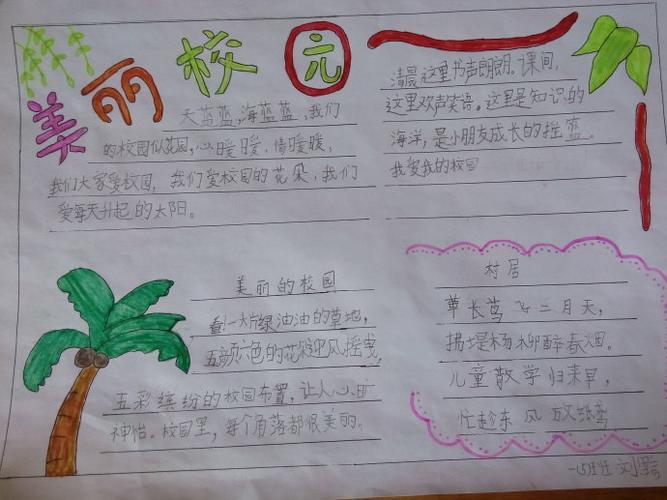 美丽校园
天蓝蓝,海蓝蓝,我们
的校园似花园,心暖暖,情暖暖,
我们大家爱校园,我们爱校园的花朵,我们
爱每天升起的太阳。
清晨这里书声朗朗。课间,
这里欢声笑语。这里是知识的
海洋,是小朋友成长的摇篮。
我爱我的校园
美丽的校园
看!一大片绿油油的草地,
五颜六色的花朵迎风摇曳,
五彩缤纷的校园布置,让人心旷
神怡。校园里,每个角落都很美丽。
村居
草长莺飞二月天,
拂堤杨柳醉春烟。
儿童散学归来早,
忙趁东风放纸鸢
一(5)班 刘